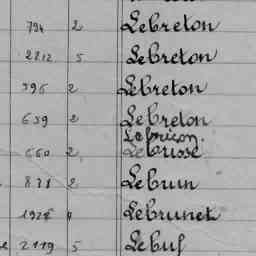 794 2 Lebreton
2212 5 Lebreton
996 2 Lebreton
659 2 Lebreton
Lebricon
660 2 Lebrisse
871 2 Lebrun
1928 Lebrunet
2119 5 Lebuf